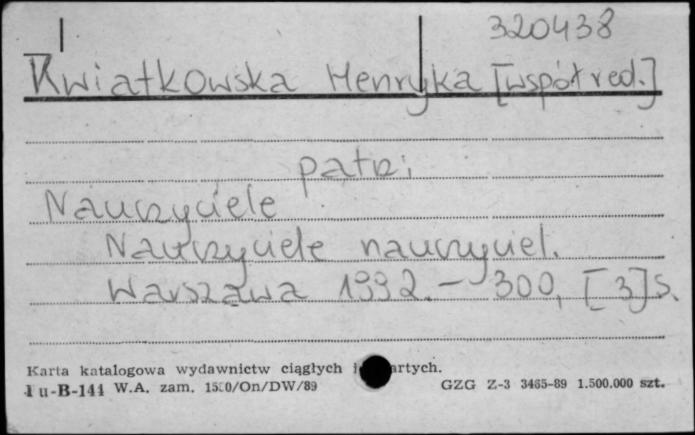 320438
Kwiatkowska Henryka [współred.]
patrz:
Nauczyciele
Nauczyciele nauczyciel.
Warszawa 1992. - 300, [3] s.
Karta katalogowa wydawnictw ciągłych i artych.
Pu-B-141 W.A. zam. 1500/On/DW/89 GZG Z-3 3465-89 1.500.000 szt.